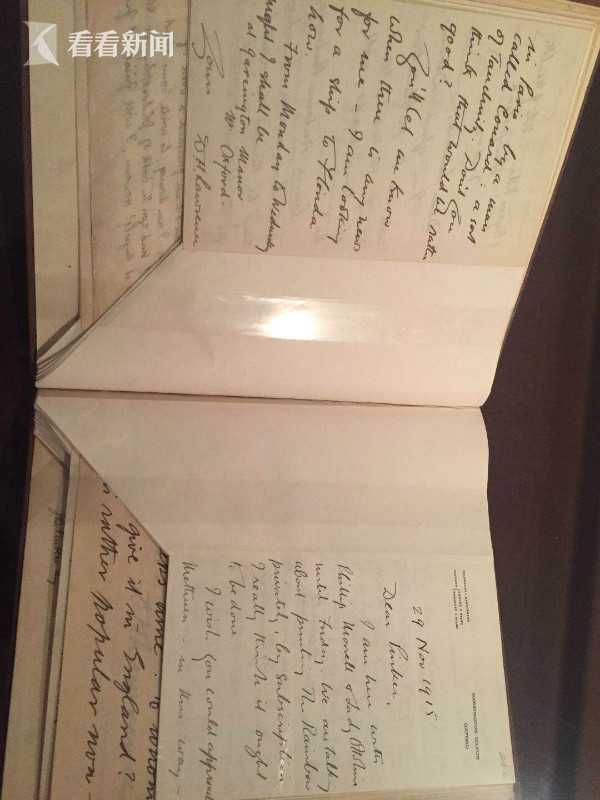 看看新闻
in Paris by a man
called Conard: a sort
of Tauchnitz. Don't you
think that would be rather
good?
You'll let me know
when there is any news
for me – I am looking
for a ship to Florida
now.
From Monday to Wednesday
night I shall be
at Garsington Manor
Nr. Oxford.
Yours
D H Lawrence
GARSINGTON MANOR
OXFORD
29 Nov 1915
Dear Pinker,
I am here with
Philip Morrell & Lady Ottoline
until today. We are talking
about printing The Rainbow
privately, by subscription.
I really think it ought
to be done.
I wish you could approach
Methuen – in this way –
whom
give it in England?
is rather popular now –